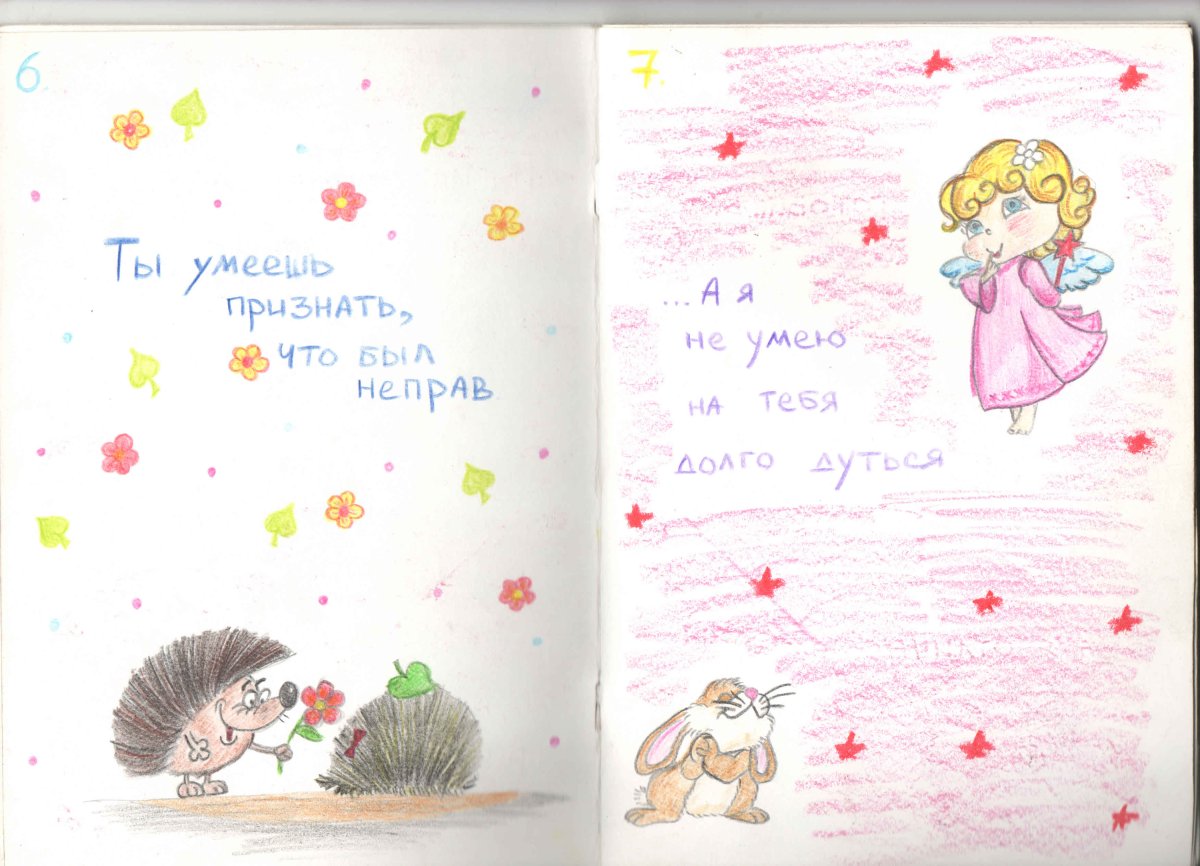 6.
Ты умеешь
признать,
что был
неправ
7.
...А я
не умею
на тебя
долго дуться